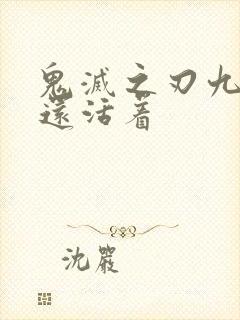 鬼滅之刃九
還活着
沈嚴